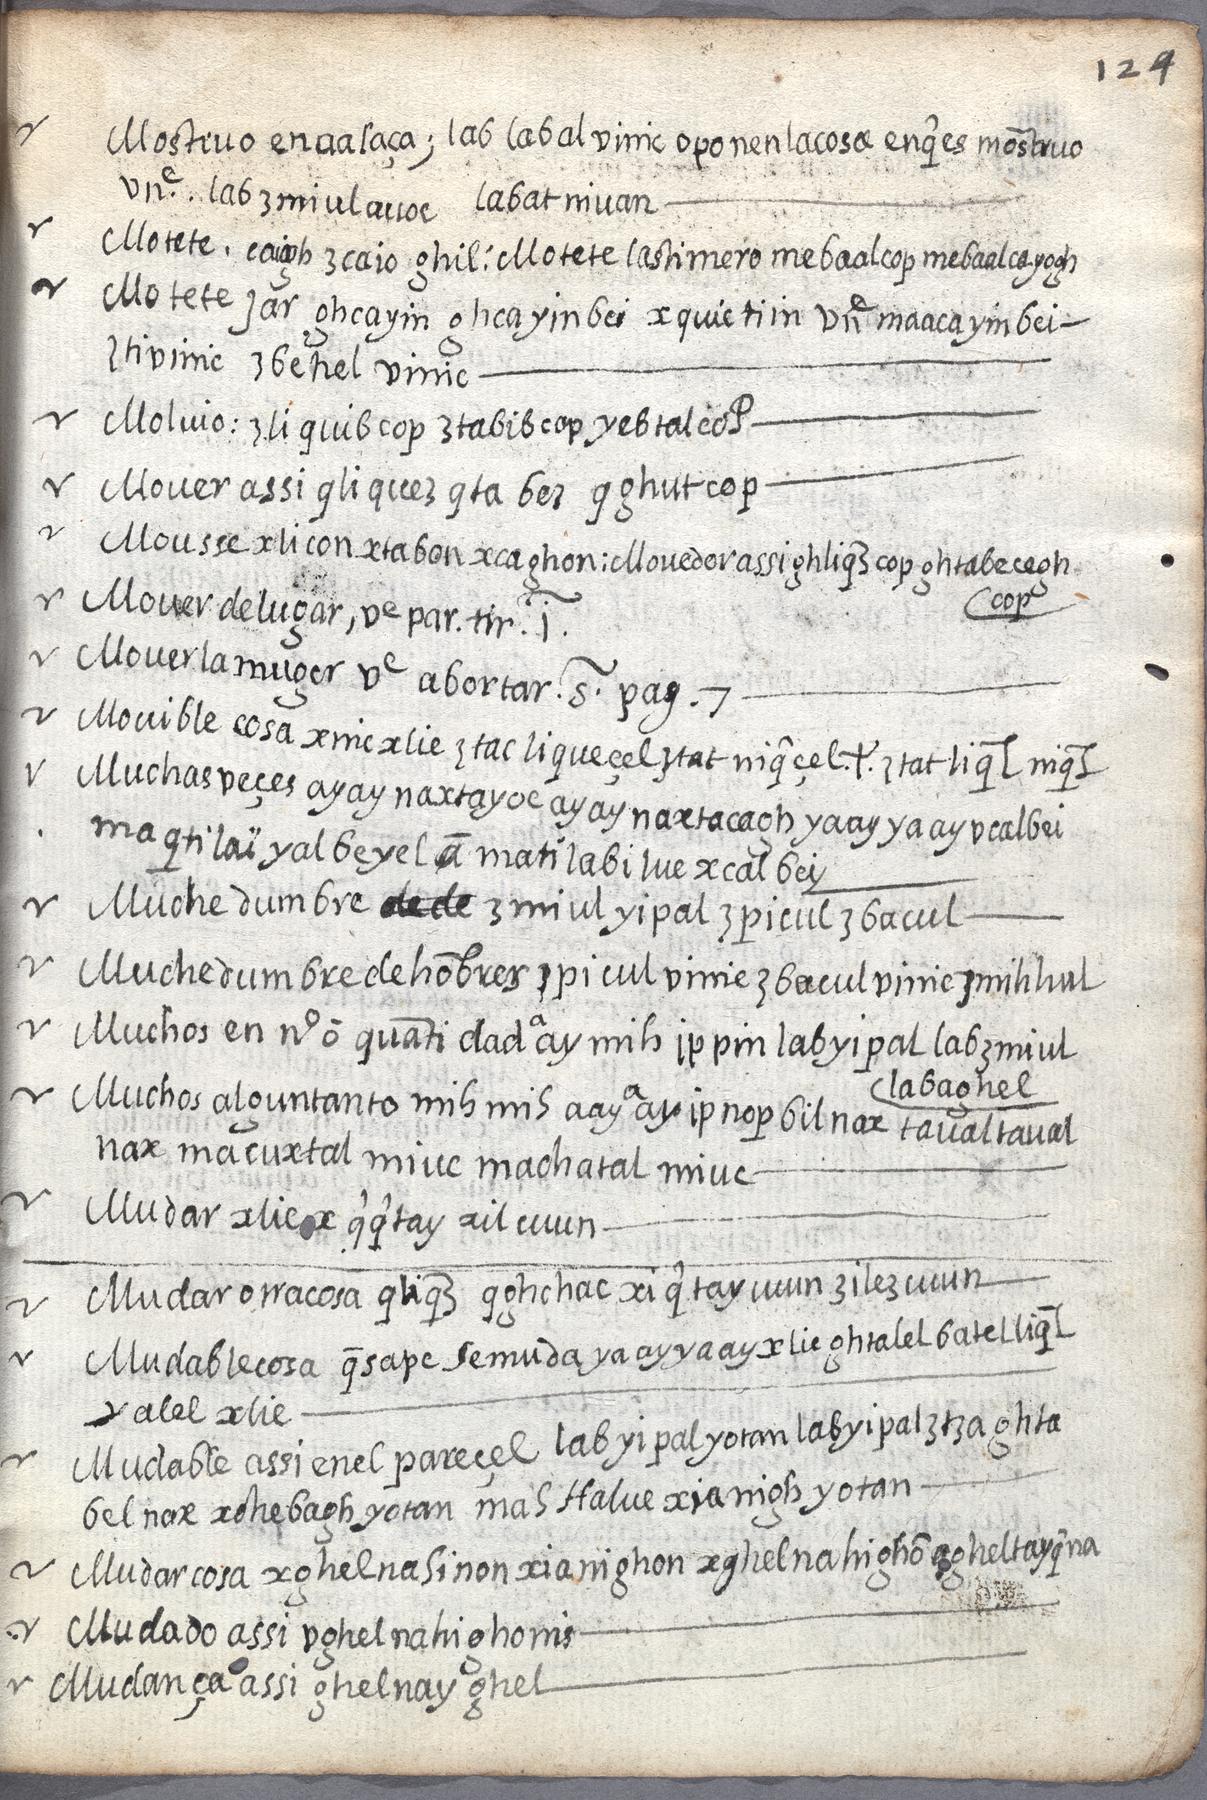 124
Mostruo en aalaça; lab labal vinic oponen lacosa enq̃es mõstruo
vnᵉ. lab ʒmiulauoc labat nivan
Motete. caigh ʒcaio ghil: Motete lastimero mebaalcop mebaalcayogh
Motete ʒar ghcayin ghcayinbei xquictiin vnᵉ maacayinbei
ʒtivinic ʒbehel vinic
Moluio: ʒliquibcop ʒtabibcop yebtalcop
Mouer assi qliqueʒ qta beʒ qghutcop
Mousse xlicon xtabon xcaghon: Mouedor assi ghliq̃ʒ cop ghtabecegh
cop
Mouer delugar, vᵉ par.tir. j̃.
Mouerlamuger vᵉ abortar. s̃. pag. 7
Mouible cosa xmcxlic ʒtac liqueçel ʒtat niq̃çel. t. ʒtat liq̃l niq̃l
Muchas veçes ayay naxtayoc ayay naxtacagh yaay yaay vcalbei
maqtilaï yalbeyel ā mati labi lue xcal bei
Muchedumbre ʒmiul yipal ʒpicul ʒbacul
Muchedumbre de hõbres ʒpicul vinic ʒbacul vinic ʒmihhul
Muchos en nº õ quãti dadᵃ ay mih ippin labyipal labʒmiul
labaghel
Muchos alguntanto mih mih aayᵃ ay ipnop bilnax taualtaual
nax macuxtal miuc machatal miuc
Mudar xlic x q̃q̃tay xil cuun
Mudar otracosa qliq̃ʒ qghchac xi q̃tay cuun ʒileʒcuun
Mudablecosa q̃sape semuda yaayyaay xlic ghtalel batel liq̃l
yalel xlic
Mudable assi enel pareçel lab yipal yotan labyipal ʒtʒa ghta
bel nax xchebagh yotan mah ttalue xianigh yotan
Mudar cosa xghelnahinon xianighon xghelnahighõ agheltayq̃na
Mudado assi vghelnahighonis
Mudança assi ghelnay ghel